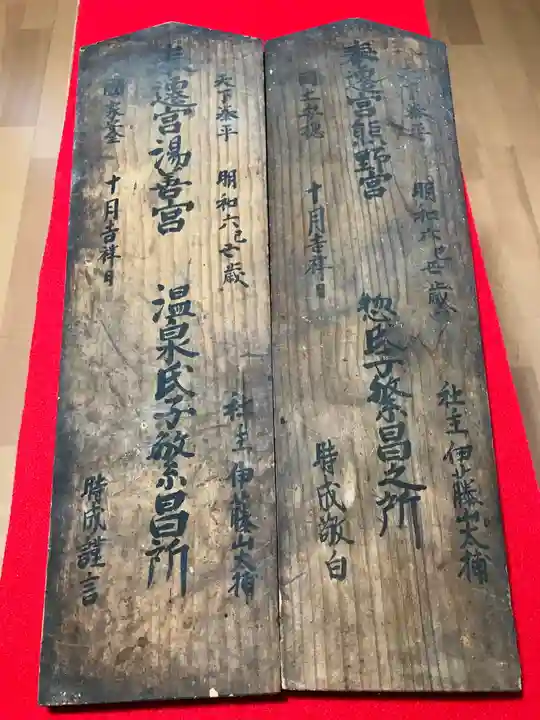 天下泰平
明和六己丑歳
社主伊藤山太捕
奉遷宮熊野宮
惣氏子繁昌之所
國土安穏
十月吉祥日
時成敬白
天下泰平
明和六己丑歳
社主伊藤山太捕
奉遷宮湯吾宮
温泉氏子繁昌所
國家安
十月吉祥日
時成謹言